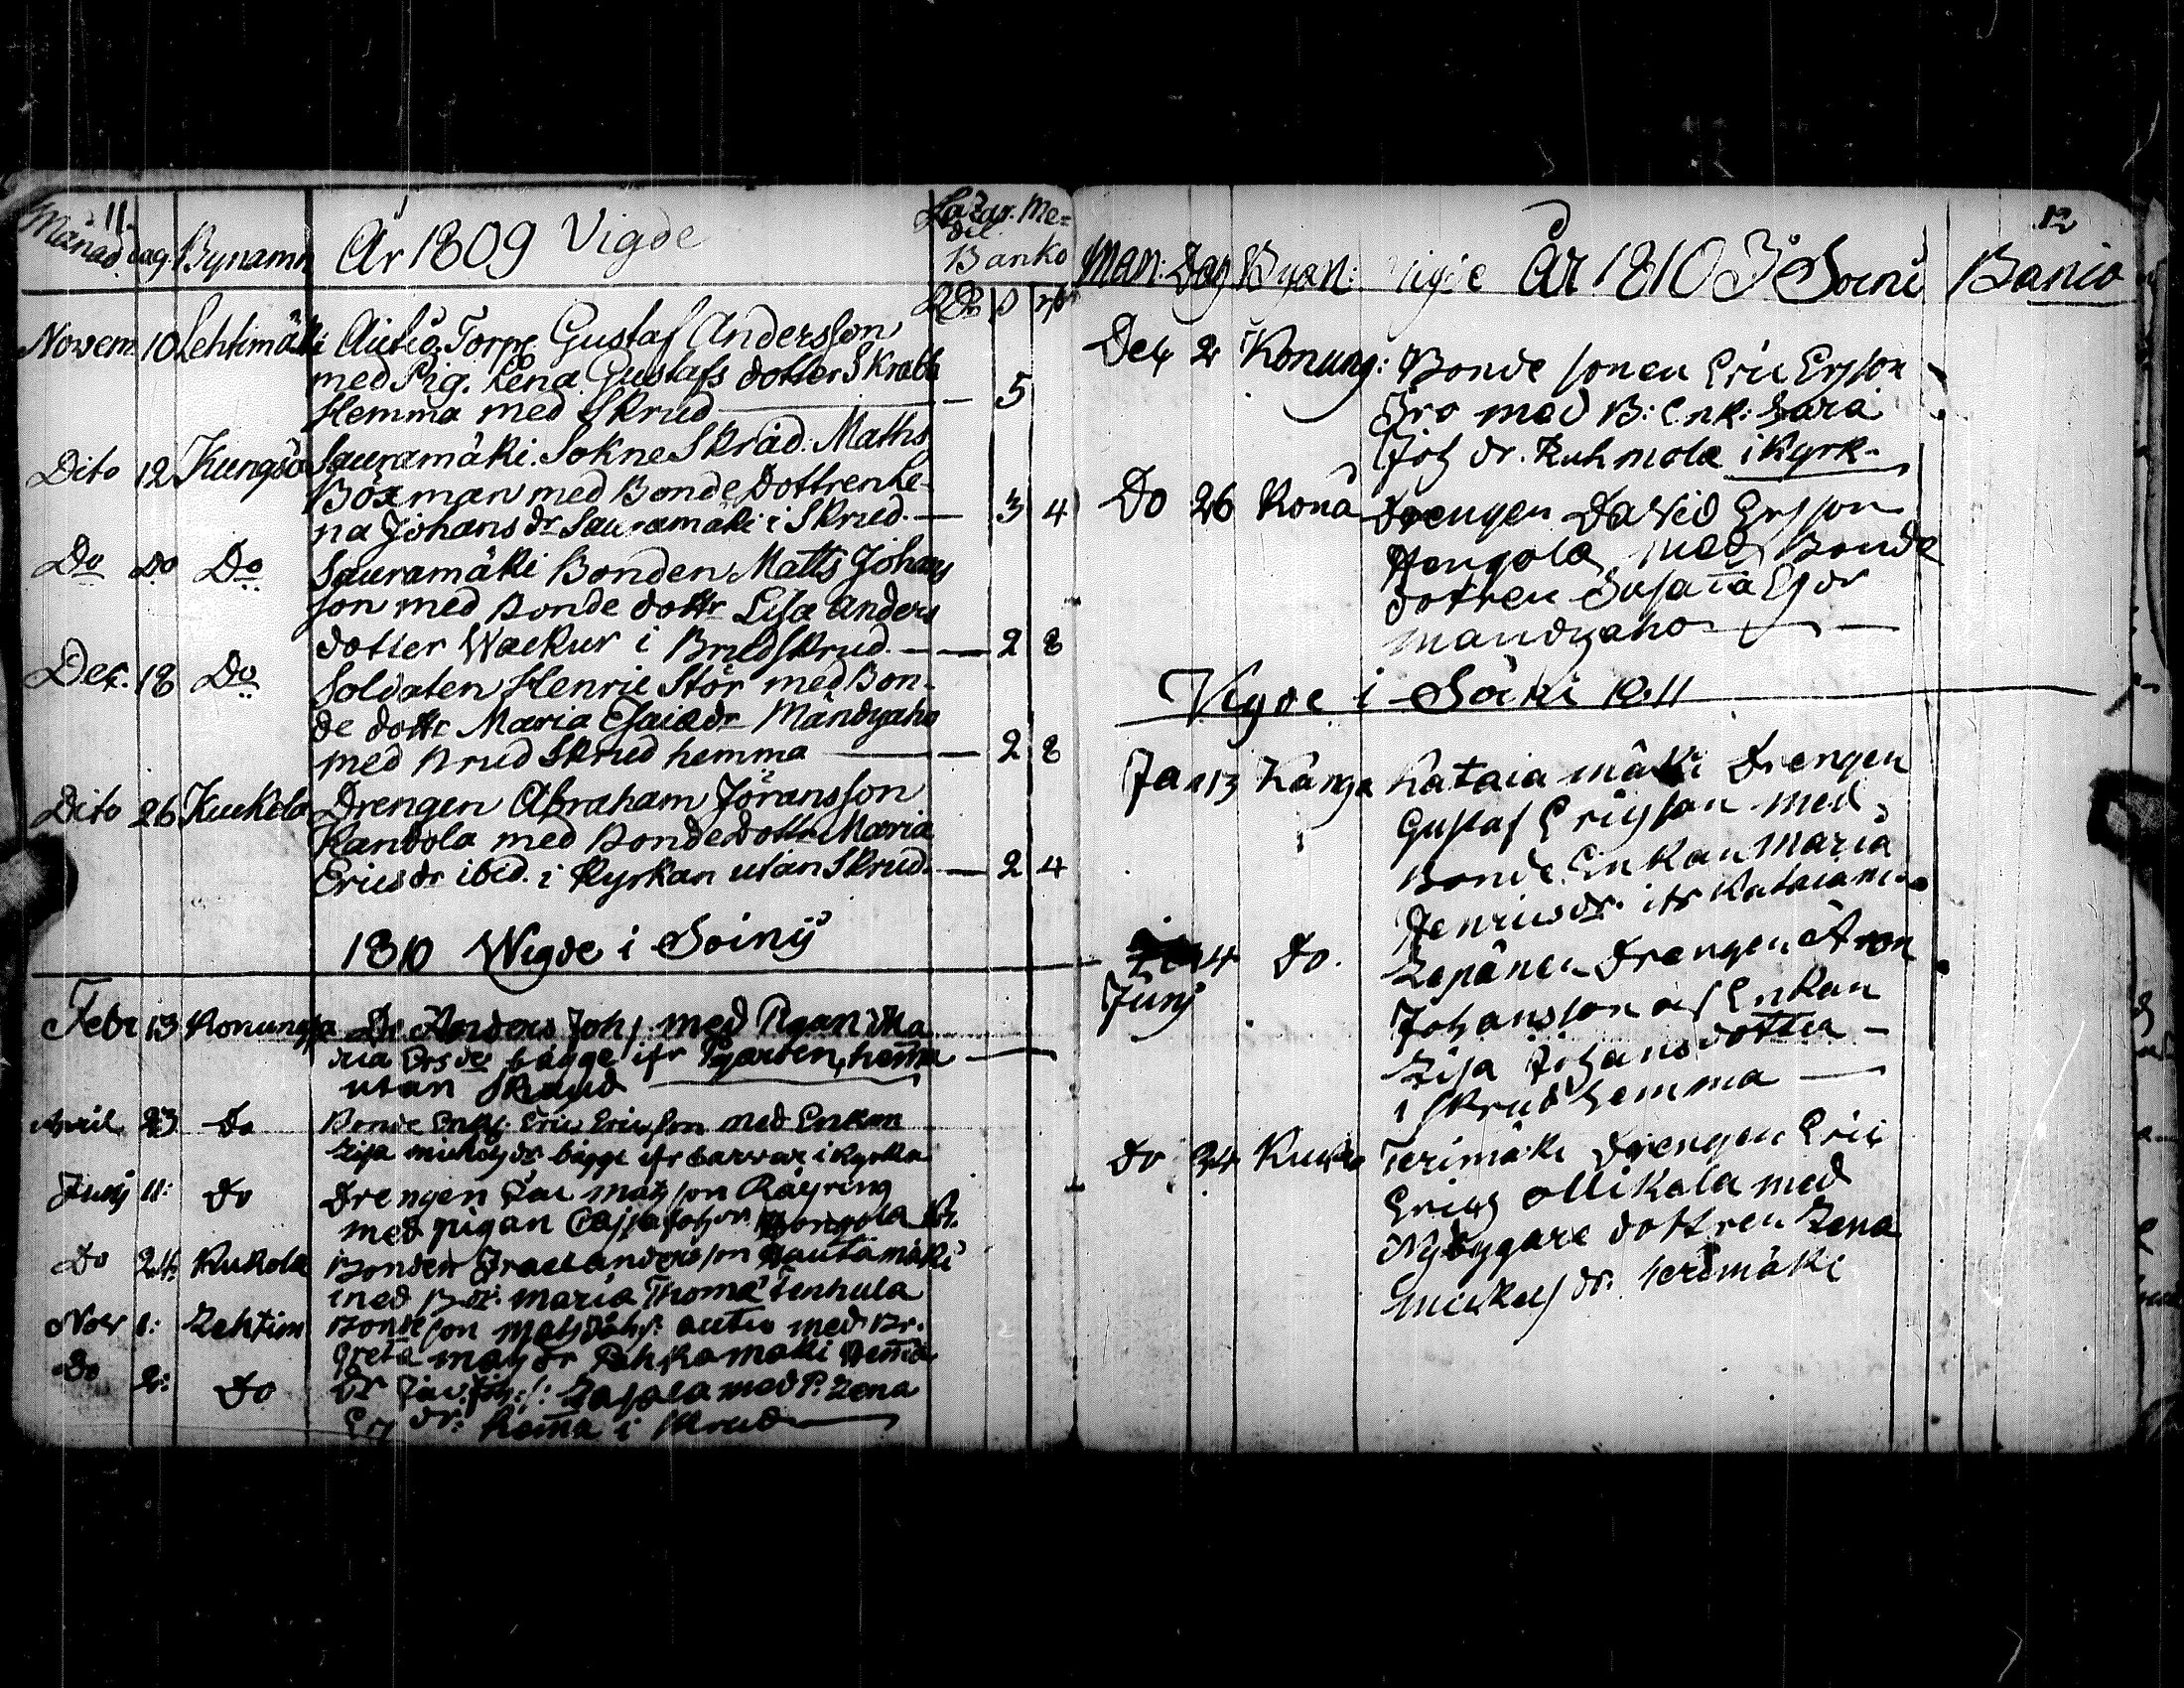 11.
Månad. dag. Bynamn År 1809 Vigde Lazar. Me=
del
Banko
Novem 10 Lehtimäki Autio Torp. Gustaf Andersson
med Pig. Lena Gustafs dotter Skrabb
Hemma med Skrud — 5
Dito 12 Kungsö Sauramäki. Sokne Skräd. Maths
Böxman med Bonde Dottren Le-
na Johans dr Sauramäki i Skrud. — 3 4
Do Do Do Sauramäki Bonden Matts Johans
son med Bonde dottr Lisa Anders
dotter Wackur i Brudskrud. — 2 8
Dec. 18 Do Soldaten Henric Stör med Bon-
de dottr Maria Esaiædr Mändyaho
med Brud Skrud hemma — 2 8
Dito 26 Kuckola Drengen Abraham Jöransson
Kandola med Bondedottr Maria
Ericsdr ibid. i Kyrkan utan Skrud. — 2 4
1810 Wigde i Soinij
Febr 13 Konungsa Dr. Anders Johs. med Pigan Ma
ria Ersdr bägge ifr garden, hem̄a
utan Skrud
April 23 Do Bonde Enkl. Eric Ericsson med Enkan
Lisa Michelsdr bägge ifr i Kyrka
Junij 11: Do Drengen Matsson Råyring
med pigan Cajsa Johsdr
Do 24 Kukola Bonden Israel Andersson Rautamäki
med B. dr. Maria Thoma Tenhula
Nov 1: Lehtim Bonde son Mats Johs: Autio med Br.
Greta Mats dr Pahkamäki hem̄a
Do 2: Do Dr Joh: s: Lasala med P. Lena
Ers dr: hem̄a i Skrud
12
Mån: Dag Byan: Vigde År 1810 I Soini Banco
Dec 2 Konung: Bonde sonen Eric Ersson
Iro med B: Enk: Sara
Joh dr. Kuhmola i Kyrk-
Do 26 Konu Drengen David Ersson
Hengola med Bonde
dotren Susan̄a Es dr
Mandyaho
Vigde i Soini 1811
Jan 13 Kånga Kataiamäki Drengen
Gustaf Ericsson med
Bonde Enkan Maria
Henricsdr. ifr Kataiam
4 Do. Lepänen Drengen Aron
Junij Johansson Enkan
Lisa Johansdotter
i skrud hemma
Do 24 Terimäki Drengen Eric
Erics Ollikala med
Nybygare dottren Lena
Mickels dr. Terimäki